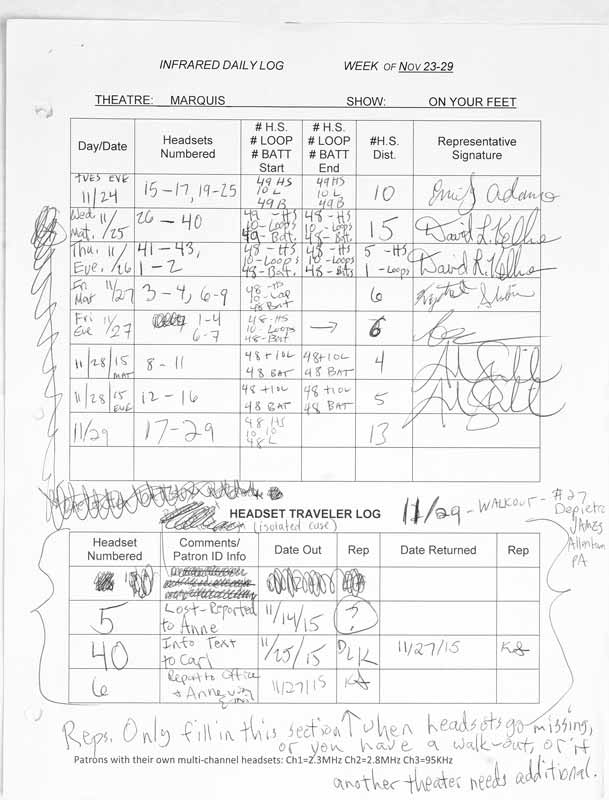 INFRARED DAILY LOG WEEK OF NOV 23-29
THEATRE: MARQUIS SHOW: ON YOUR FEET
Day/Date Headsets Numbered # H.S. # LOOP # BATT Start # H.S. # LOOP # BATT End #H.S. Dist. Representative Signature
TUES EVE 11/24 15-17, 19-25 49 HS 10 L 49 B 49 HS 10 L 49 B 10 Emily Adams
Wed. 11/ Mat. /25 26-40 49 - HS 10-Loops 49-Bat. 48-HS 10-Loops 48-Bat. 15 David L. Kellie
Thu. 11/ Eve. /26 41-43, 1-2 48-HS 10-Loops 48-Bat. 48-HS 10-Loops 48-Bat. 5-HS 1-Loops David R. Kellie
Fri Mat 11/27 3-4, 6-9 48-HS 10-Loop 48 Batt 6
Fri Eve 11/27 1-4 6-7 48-HS 10-Loops 48-Batt → 6
11/28/15 MAT 8-11 48+10L 48 BAT 48+10L 48 BAT 4
11/28/15 EVE 12-16 48+10L 48 BAT 48+10L 48 BAT 5
11/29 17-29 48 HS 10 10 48 L 13
HEADSET TRAVELER LOG
(isolated case)
11/29 - WALKOUT - #27
Depietr
James
Allentown
PA
Headset Numbered Comments/ Patron ID Info Date Out Rep Date Returned Rep
5 Lost-Reported to Anne 11/14/15 ?
40 Info Text to Carl 11/25/15 DLK 11/27/15 KS
6 Report to Office + Anne 11/27/15 KS
Reps. Only fill in this section ↑ when headsets go missing,
or you have a walk-out, or if
Patrons with their own multi-channel headsets: Ch1=2.3MHz Ch2=2.8MHz Ch3=95KHz
another theater needs additional.